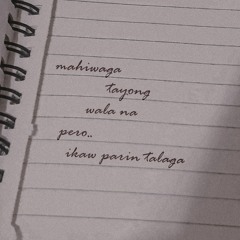 mahiwaga
tayong
wala na
pero..
ikaw parin talaga